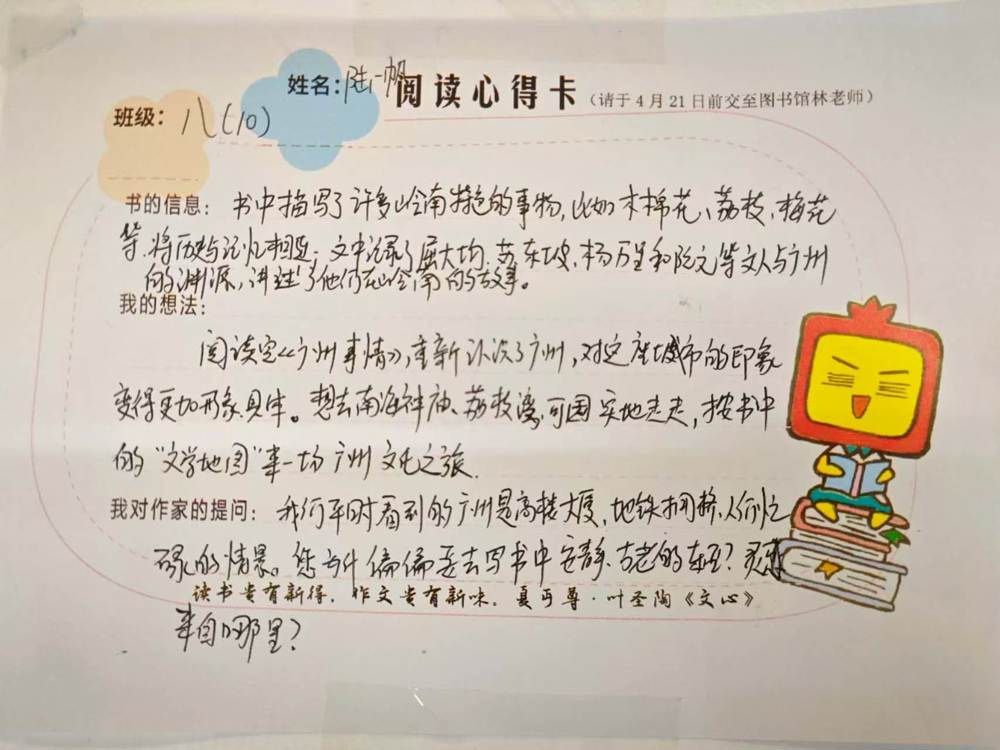 姓名：陆一帆 阅读心得卡（请于4月21日前交至图书馆林老师）
班级：八（10）
书的信息：书中描写了许多岭南特色的事物，比如木棉花、荔枝、梅花
等，将历史与记忆相连；文中记录了屈大均、苏东坡、杨万里和阮元等文人与广州
的渊源，讲述了他们在岭南的故事。
我的想法：
阅读完《广州事情》，重新认识了广州，对这座城市的印象
变得更加形象具体。想去南海神庙、荔枝湾、可园实地走走，按书中
的“文学地图”来一场广州文化之旅.
我对作家的提问：我们平时看到的广州是高楼大厦，地铁拥挤，人们忙
碌的情景。您为什偏偏要去写书中安静、古老的东西？灵感
读书贵有新得，作文贵有新味。夏丏尊·叶圣陶《文心》
来自哪里？